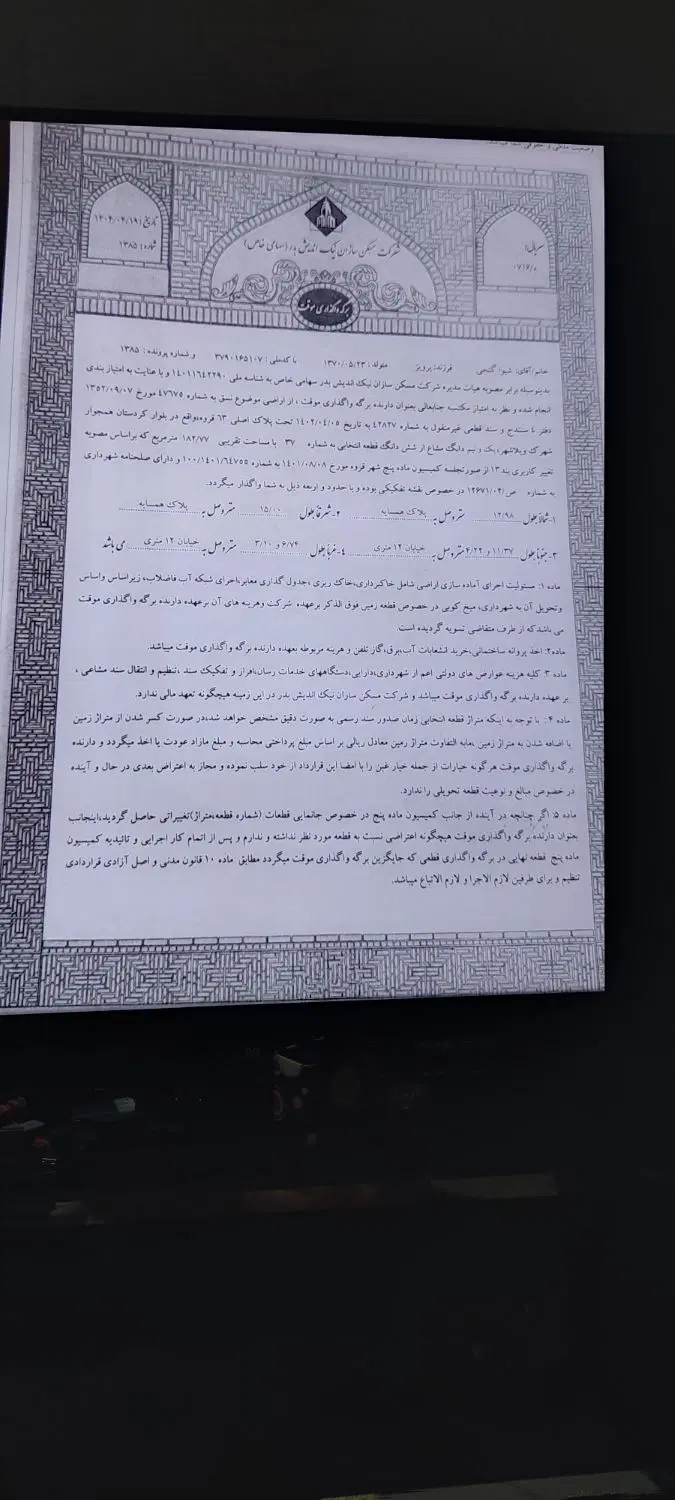 تاریخ: ۱۴۰۴/۰۴/۱۹
شماره: ۱۳۸۵
شرکت مسکن سازان نیک اندیش بدر (سهامی خاص)
سریال:
برگه واگذاری موقت
خانم/آقای: شیوا گنجی فرزند: پرویز متولد: ۱۳۷۰/۰۵/۲۳ با کدملی: ۳۷۹۰۱۶۵۱۰۷ و شماره پرونده: ۱۳۸۵
بدینوسیله برابر مصوبه هیات مدیره شرکت مسکن سازان نیک اندیش بدر سهامی خاص به شناسه ملی ۱۴۰۱۱۶۴۲۲۹۰ و با عنایت به امتیاز بندی
انجام شده و نظر به امتیاز مکتسبه جنابعالی بعنوان دارنده برگه واگذاری موقت ، از اراضی موضوع نسق به شماره ۴۷۶۷۵ مورخ ۱۳۵۲/۰۹/۰۷
دفتر ۱ سنندج و سند قطعی غیرمنقول به شماره ۴۲۸۲۷ به تاریخ ۱۴۰۲/۰۴/۰۵ تحت پلاک اصلی ۶۳ قروه،واقع در بلوار کردستان همجوار
شهرک ویلاشهر، یک و نیم دانگ مشاع از شش دانگ قطعه انتخابی به شماره ۳۷ با مساحت تقریبی ۱۸۲/۷۷ مترمربع که براساس مصوبه
تغییر کاربری بند ۱۳ از صورتجلسه کمیسیون ماده پنج شهر قروه مورخ ۱۴۰۱/۰۸/۰۸ به شماره ۱۰۰/۱۴۰۱/۶۴۷۵۵ و دارای صلحنامه شهرداری
به شماره ص/۱۲۶۷۱/۰۲ در خصوص نقشه تفکیکی بوده و با حدود و اربعه ذیل به شما واگذار میگردد.
۱-شمالاً بطول ۱۲/۹۸ متر وصل به پلاک همسایه ۲-شرقاً بطول ۱۵/۰۰ متر وصل به پلاک همسایه
۳-جنوباً بطول ۱۱/۳۷ و ۴/۲۲ متر وصل به خیابان ۱۲ متری ۴-غرباً بطول ۶/۷۴ و ۳/۱۰ متر وصل به خیابان ۱۲ متری می باشد
ماده ۱: مسئولیت اجرای آماده سازی اراضی شامل خاکبرداری،خاک ریزی ،جدول گذاری معابر،اجرای شبکه آب فاضلاب، زیراساس واساس
وتحویل آن به شهرداری، میخ کوبی در خصوص قطعه زمین فوق الذکر برعهده شرکت وهزینه های آن برعهده دارنده برگه واگذاری موقت
می باشدکه از طرف متقاضی تسویه گردیده است.
ماده۲: اخذ پروانه ساختمانی،خرید انشعابات آب،برق،گاز تلفن و هزینه مربوطه بعهده دارنده برگه واگذاری موقت میباشد.
ماده ۳: کلیه هزینه عوارض های دولتی اعم از شهرداری،دارایی،دستگاههای خدمات رسان،افراز و تفکیک سند ،تنظیم و انتقال سند مشاعی ،
بر عهده دارنده برگه واگذاری موقت میباشد و شرکت مسکن سازان نیک اندیش بدر در این زمینه هیچگونه تعهد مالی ندارد.
ماده ۴: با توجه به اینکه متراژ قطعه انتخابی زمان صدور سند رسمی به صورت دقیق مشخص خواهد شد،در صورت کسر شدن از متراژ زمین
یا اضافه شدن به متراژ زمین ،مابه التفاوت متراژ زمین معادل ریالی بر اساس مبلغ پرداختی محاسبه و مبلغ مازاد عودت یا اخذ میگردد و دارنده
برگه واگذاری موقت هرگونه خیارات از جمله خیار غبن را با امضا این قرارداد از خود سلب نموده و مجاز به اعتراض بعدی در حال و آینده
در خصوص مبالغ و نوعیت قطعه تحویلی را ندارد.
ماده ۵: اگر چنانچه در آینده از جانب کمیسیون ماده پنج در خصوص جانمایی قطعات (شماره قطعه،متراژ)تغییراتی حاصل گردید،اینجانب
بعنوان دارنده برگه واگذاری موقت هیچگونه اعتراضی نسبت به قطعه مورد نظر نداشته و ندارم و پس از اتمام کار اجرایی و تائیدیه کمیسیون
ماده پنج قطعه نهایی در برگه واگذاری قطعی که جایگزین برگه واگذاری موقت میگردد مطابق ماده ۱۰ قانون مدنی و اصل آزادی قراردادی
تنظیم و برای طرفین لازم الاجرا و لازم الاتباع میباشد.